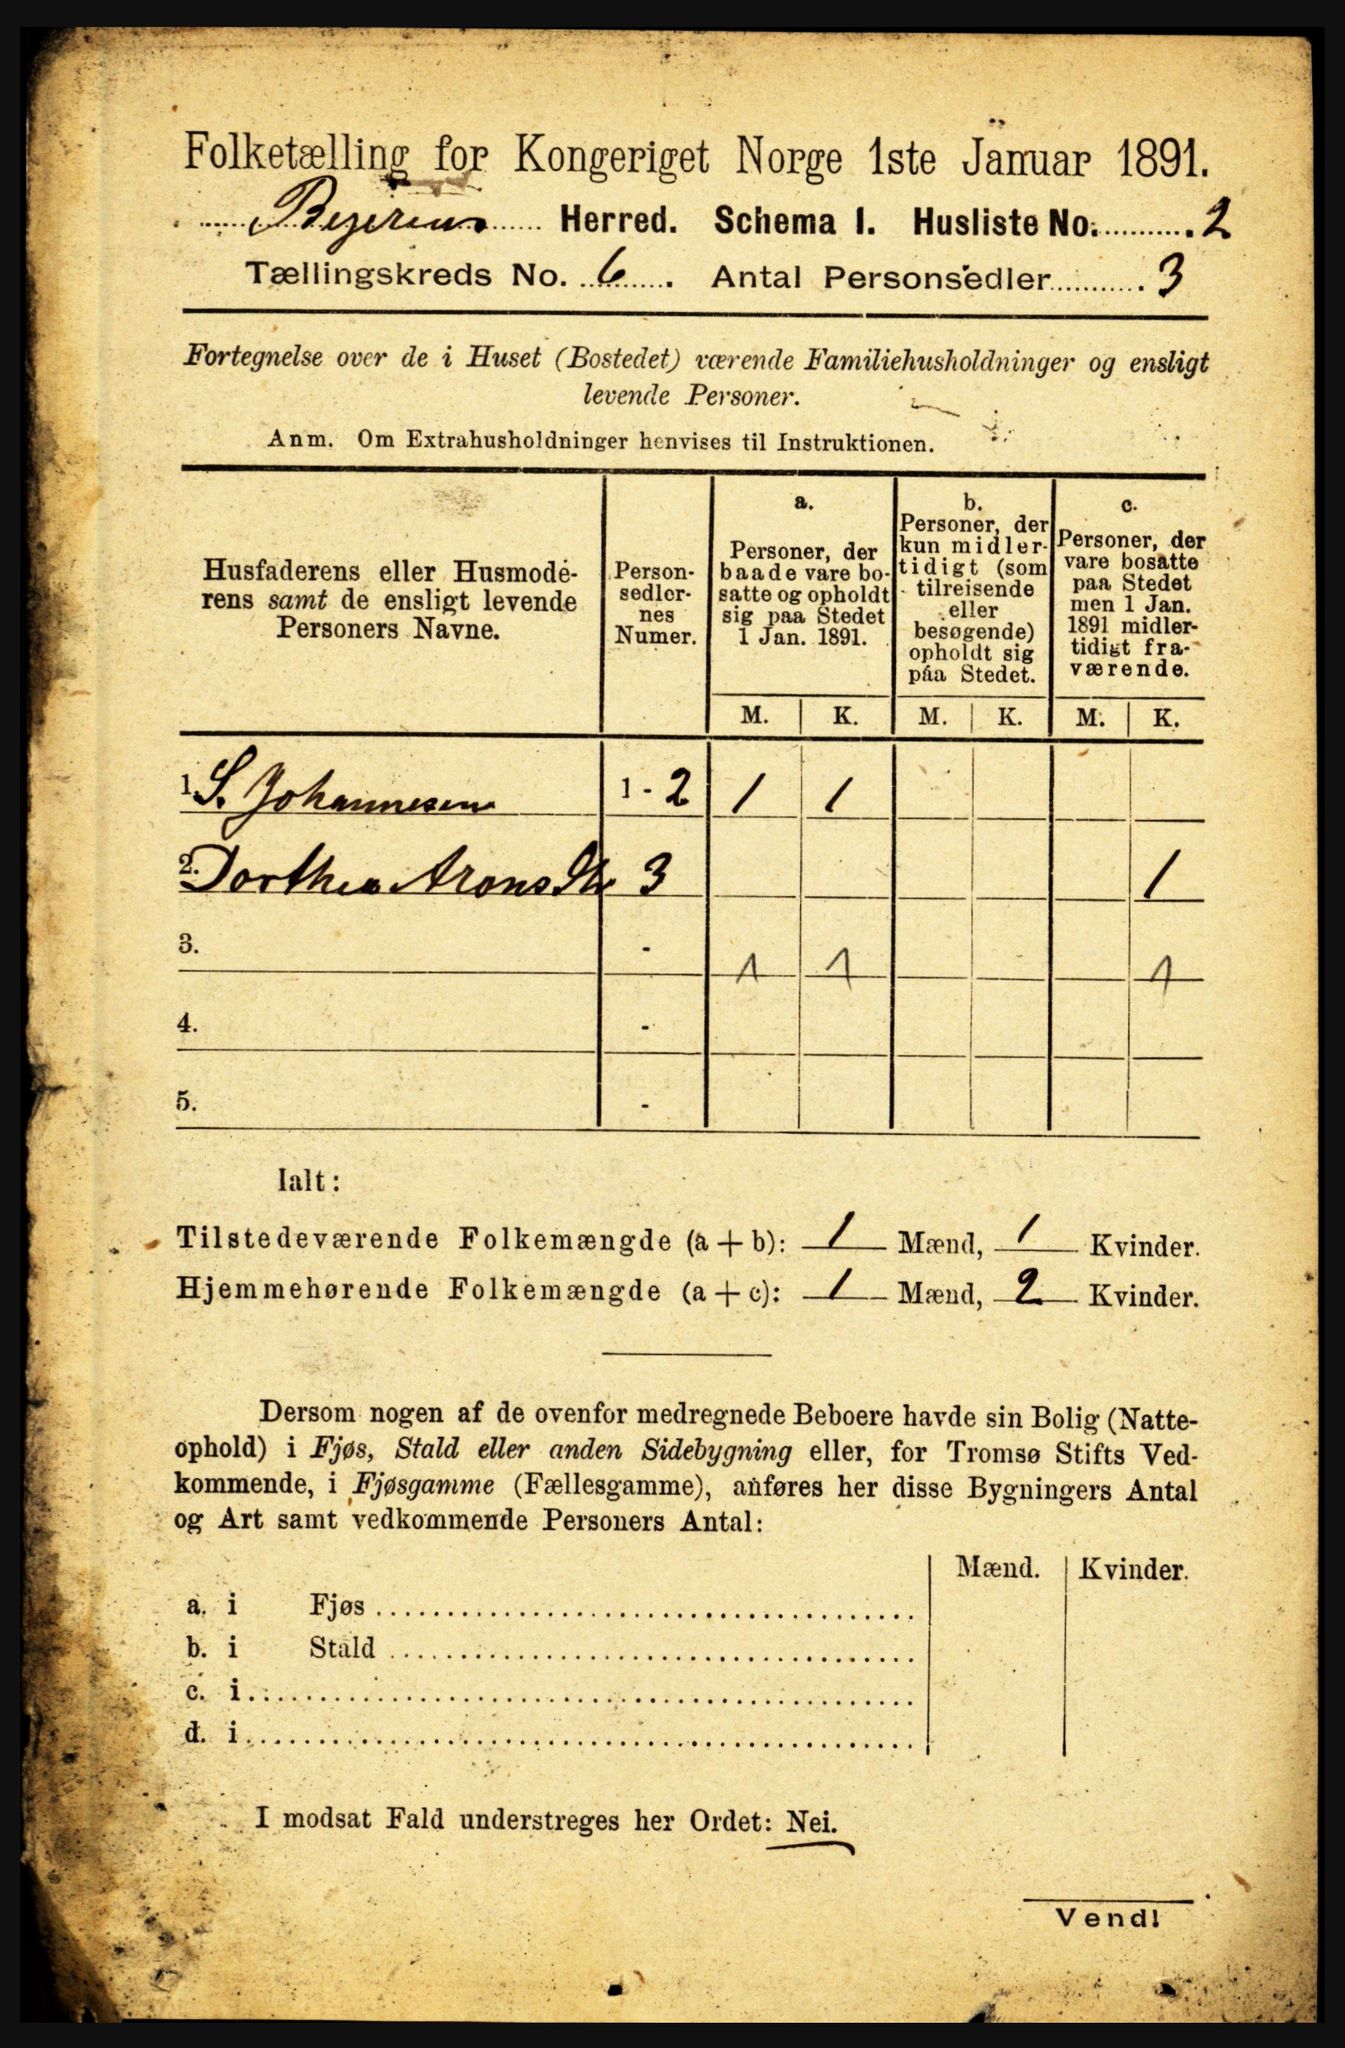 Folketælling for Kongeriget Norge 1ste Januar 1891.
Bejeren Herred. Schema I. Husliste No. 2
Tællingskreds No. 6. Antal Personsedler 3
Fortegnelse over de i Huset (Bostedet) værende Familiehusholdninger og ensligt
levende Personer.
Anm. Om Extrahusholdninger henvises til Instruktionen.
Husfaderens eller Husmode-
rens samt de ensligt levende
Personers Navne.
Person-
sedler-
nes
Numer.
a.
Personer, der
baade vare bo-
satte og opholdt
sig paa Stedet
1 Jan. 1891.
b.
Personer, der
kun midler-
tidigt (som
tilreisende
eller
besøgende)
opholdt sig
paa Stedet.
c.
Personer, der
vare bosatte
paa Stedet
men 1 Jan.
1891 midler-
tidigt fra-
værende.
M. K. M. K. M. K.
1. S. Johannesen 1 - 2 1 1
2. Dorthea Arons Dtr 3 1
3. - 1 1 1
4. -
5. -
Ialt:
Tilstedeværende Folkemængde (a + b): 1 Mænd, 1 Kvinder.
Hjemmehørende Folkemængde (a + c): 1 Mænd, 2 Kvinder.
Dersom nogen af de ovenfor medregnede Beboere havde sin Bolig (Natte-
ophold) i Fjøs, Stald eller anden Sidebygning eller, for Tromsø Stifts Ved-
kommende, i Fjøsgamme (Fællesgamme), anføres her disse Bygningers Antal
og Art samt vedkommende Personers Antal:
Mænd. Kvinder.
a. i Fjøs
b. i Stald
c. i
d. i
I modsat Fald understreges her Ordet: Nei.
Vend!